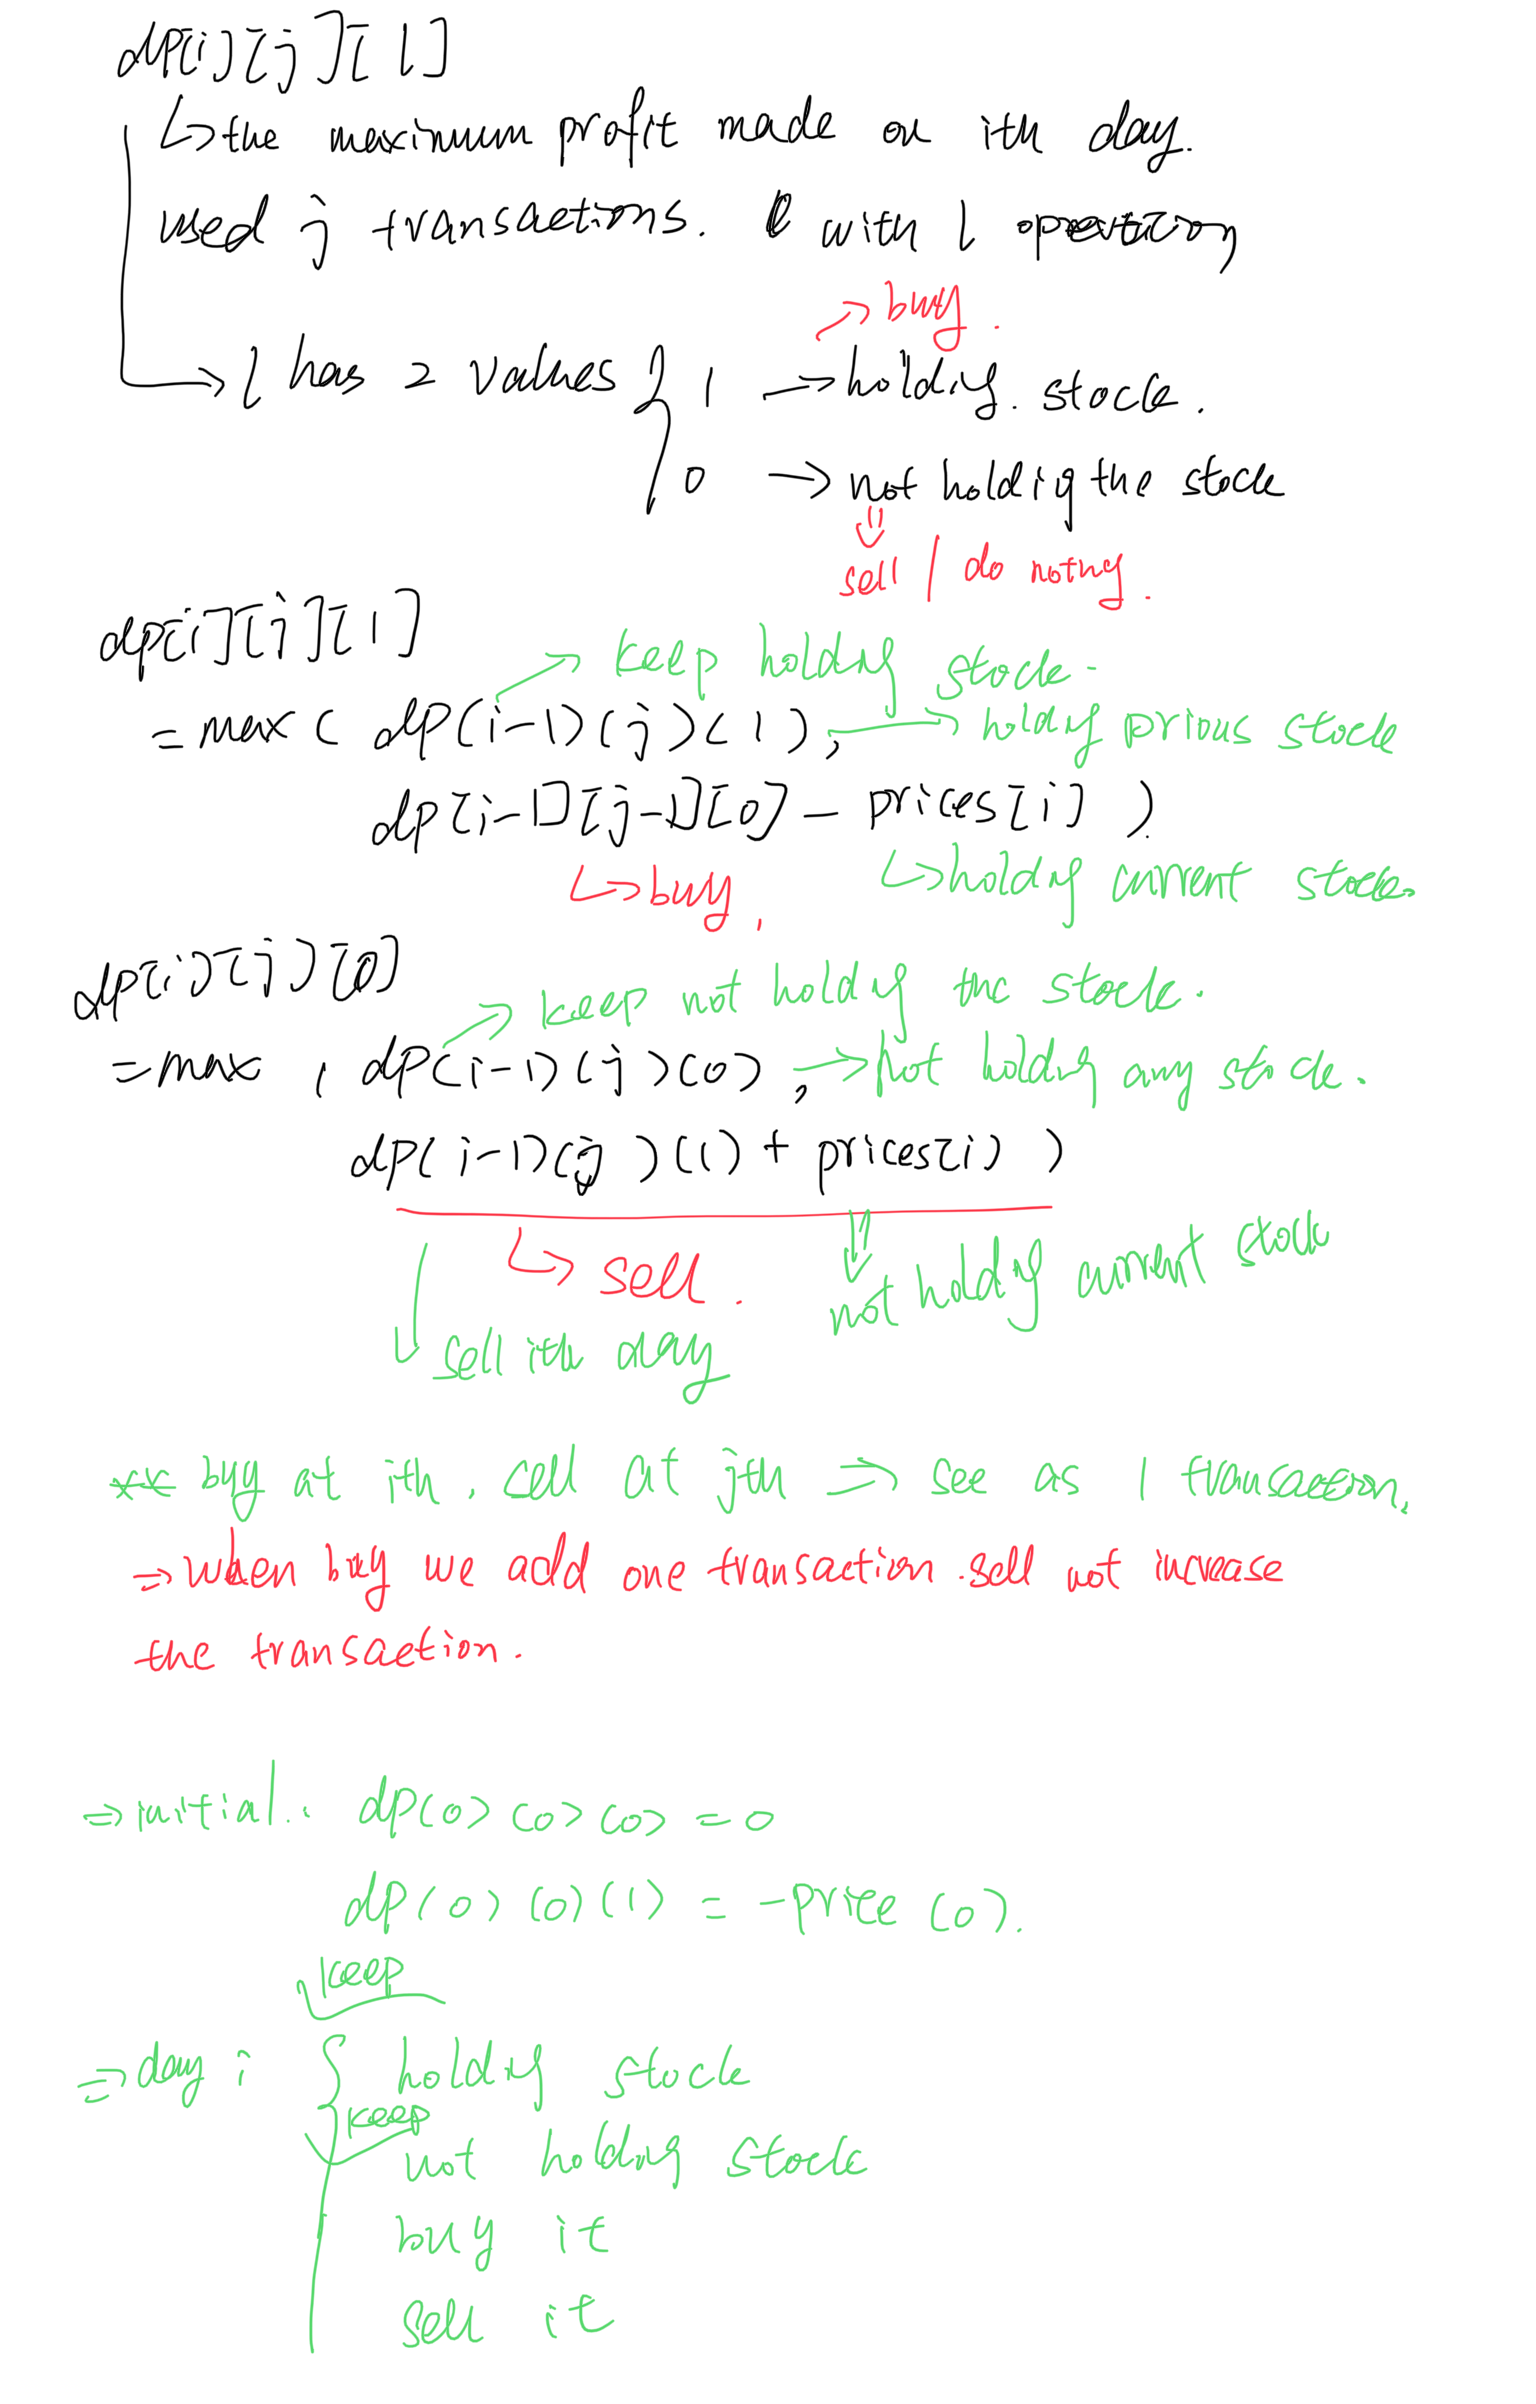 dp[i][j][l]
↳the maximum profit made on ith day.
used j transactions. with l operation,
→buy.
→l has 2 values { 1 → holdig. stock.
0 → not holdig the stock
⇓
sell / do nothg.
dp[i][j][1]
→ keep holdig stock.
= max ( dp(i-1)(j)(1), → holdig prious stock
dp[i-1][j-1][0] - prices[i] )
↳buy, ↳holdig current stock.
dp[i][j][0]
→ keep not holdig the stock.
=max ( dp(i-1)(j)(0), →not holdig any stock.
dp(i-1)(j)(1) + prices[i] )
↳ sell. ⇓ not holdig current stock
↳ sell ith day
** buy at ith. sell at jth ⇒ see as 1 transaction.
⇒ when buy we add one transaction. sell not increase
the transaction.
⇒initial: dp(0)(0)(0) = 0
dp(0)(0)(1) = -price(0).
keep
⇒day i { holdig stock
keep
not holdig stock
buy it
sell it